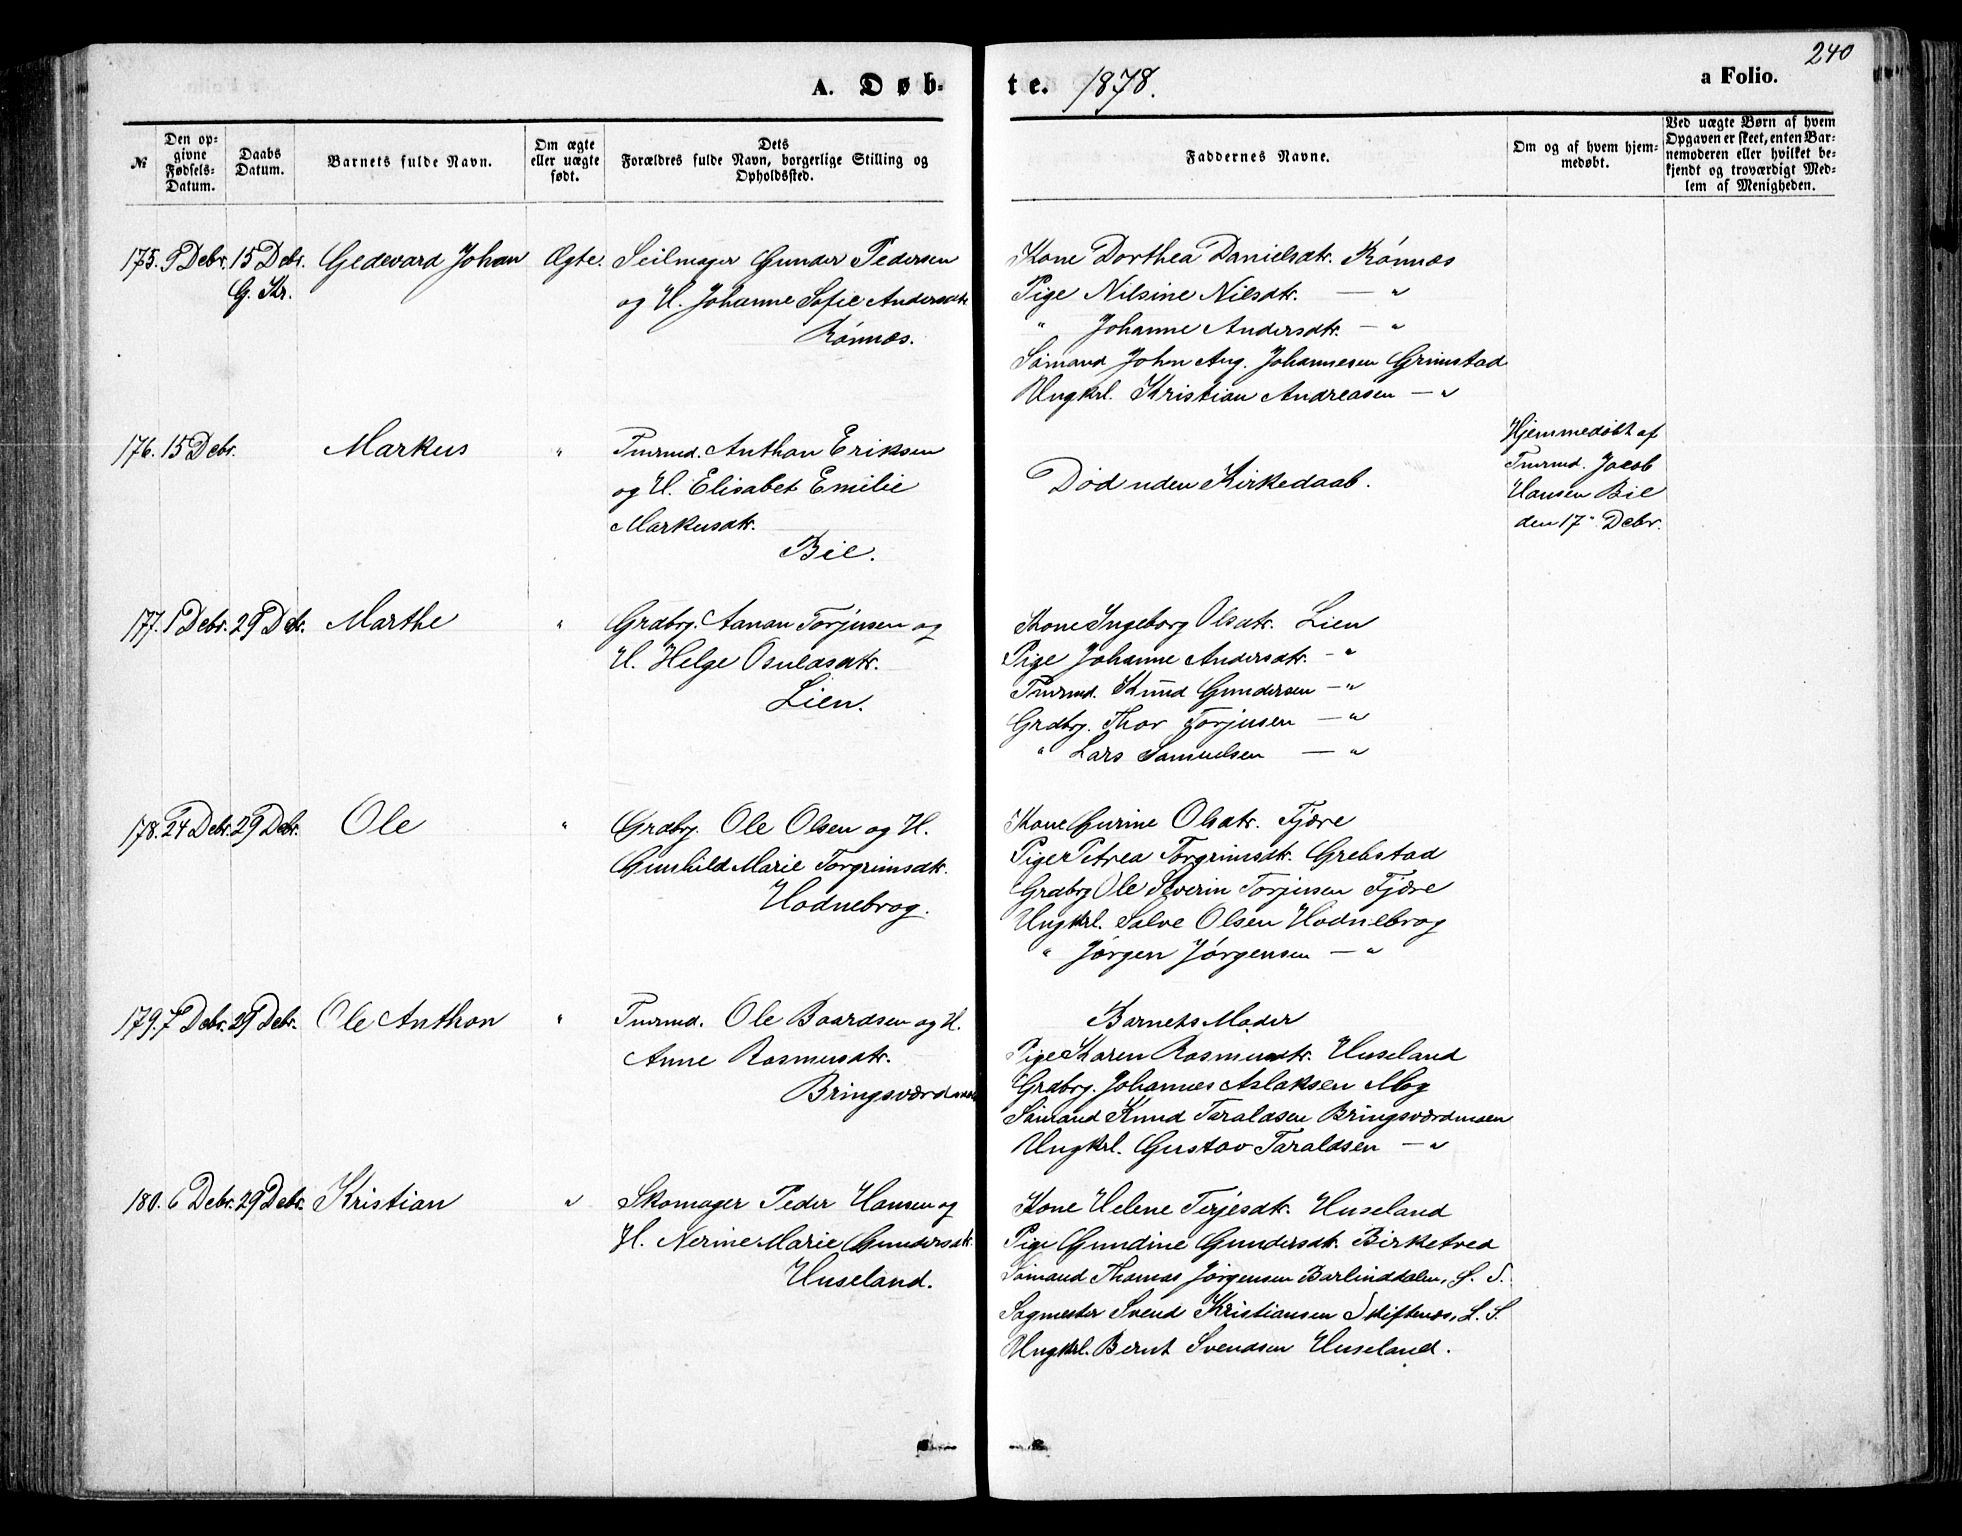 240
A. Døb-
te. 1878.
a Folio.
№
Den op-
givne
Fødsels-
Datum.
Daabs
Datum.
Barnets fulde Navn.
Om ægte
eller uægte
født.
Dets
Forældres fulde Navn, borgerlige Stilling og
Opholdssted.
Faddernes Navne.
Om og af hvem hjem-
medøbt.
Ved uægte Børn af hvem
Opgaven er skeet, enten Bar-
nemoderen eller hvilket be-
kjendt og troværdigt Med-
lem af Menigheden.
175. 9 Debr. 15 Debr. Gedevard Johan Ægte. Seilmager Gunder Pedersen
G. Kr. og H. Johanne Sofie Andersdtr.
Rønnæs.
Kone Dorthea Danielsdtr. Rønnæs
Pige Nilsine Nilsdtr. — "
" Johanne Andersdtr. — "
Sømand John Aug. Johannesen Grimstad
Ungkrl. Kristian Andreasen — "
176. 15 Debr. Markus " Tmrmd. Anthon Eriksen
og H. Elisabet Emilie
Markusdtr.
Bie.
Død uden Kirkedaab.
Hjemmedøbt af
Tmrmd. Jacob
Hansen Bie
den 17de Debr.
177. 1 Debr. 29 Debr. Marthe " Grdbrg. Aanan Torjusen og
H. Helge Osuldsdtr.
Lien.
Kone Ingeborg Olsdtr. Lien
Pige Johanne Andersdtr. — "
Tmrmd. Knud Gundersen — "
Grdbrg. Thor Torjusen — "
" Lars Samuelsen — "
178. 24 Debr. 29 Debr. Ole " Grdbrg. Ole Olsen og H.
Gunhild Marie Torgrimsdtr.
Hodnebrog.
Kone Gurine Olsdtr. Fjære
Pige Petrea Torgrimsdtr. Grebstad
Grdbrg Ole Severin Torjusen Fjære
Ungkrl. Salve Olsen Hodnebrog
" Jørgen Jørgensen — "
179. 7 Debr. 29 Debr. Ole Anthon " Tmrmd. Ole Baardsen og H.
Anne Rasmusdtr.
Bringsværdmoen
Barnets Moder
Pige Karen Rasmusdtr. Huseland
Grdbrg. Johannes Aslaksen Mog
Sømand Knud Taraldsen Bringsværdmoen
Ungkrl. Gustav Taraldsen — "
180. 6 Debr. 29 Debr. Kristian " Skomager Peder Hansen og
H. Nerine Marie Gundersdtr.
Huseland.
Kone Helene Terjesdtr. Huseland
Pige Gundine Gundersdtr. Birketved
Sømand Thomas Jørgensen Barlinddalen, L. S.
Sagmester Svend Kristiansen Skiftenæs, L. S.
Ungkrl. Bernt Svendsen Huseland.